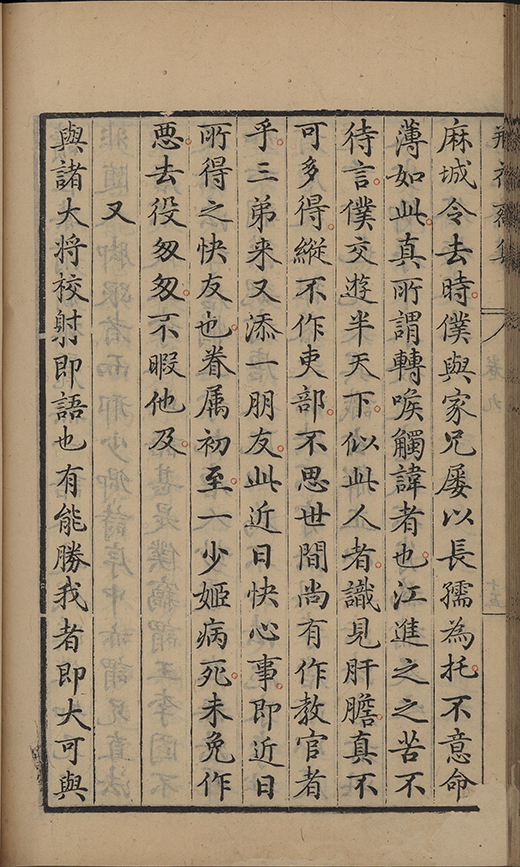 麻城令去時僕與家兄屡以長孺為托不意命
薄如此真所謂轉喉觸諱者也江進之之苦不
待言僕交遊半天下似此人者識見肝膽真不
可多得縱不作吏部不思世間尚有作教官者
乎三弟来又添一朋友此近日快心事即近日
所得之快友也眷属初至一少姬病死未免作
惡去役匆匆不暇他及
又
與諸大将校射即語也有能勝我者即大可與
卷九
十五